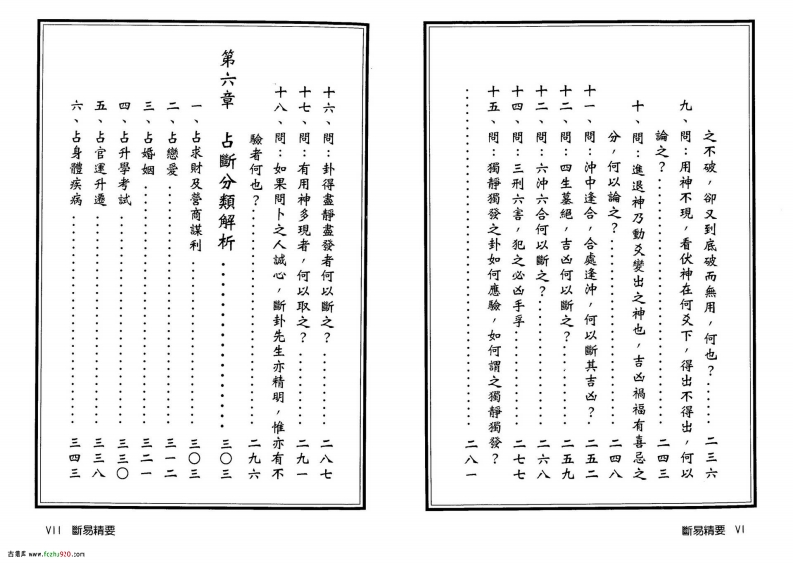 之不破，卻又到底破而無用，何也？……二三六
九、問：用神不現，看伏神在何爻下，得出不得出，何以
論之？……二四三
十、問：進退神乃動爻變出之神也，吉凶禍福有喜忌之
分，何以論之？……二四八
十一、問：沖中逢合，合處逢沖，何以斷其吉凶？……二五二
十二、問：四生墓絕，吉凶何以斷之？……二五九
十二、問：六沖六合何以斷之？……二六八
十四、問：三刑六害，犯之必凶乎……二七七
十五、問：獨靜獨發之卦如何應驗，如何謂之獨靜獨發？
……二八一
斷易精要 VI
十六、問：卦得盡靜盡發者何以斷之？……二八七
十七、問：有用神多現者，何以取之？……二九一
十八、問：如果問卜之人誠心，斷卦先生亦精明，惟亦有不
驗者何也？……二九六
第六章 占斷分類解析……三〇三
一、占求財及營商謀利……三〇三
二、占戀愛……三一二
三、占婚姻……三二一
四、占升學考試……三三〇
五、占官運升遷……三三八
六、占身體疾病……三四三
VII 斷易精要
www.fczhu920.com